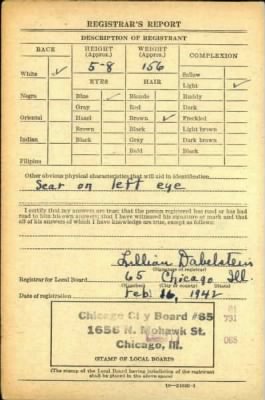 REGISTRAR'S REPORT
DESCRIPTION OF REGISTRANT
RACE HEIGHT (Approx.) WEIGHT (Approx.) COMPLEXION
White ✓ 5-8 156 Sallow
EYES HAIR Light ✓
Negro Blue ✓ Blonde Ruddy
Gray Red Dark
Oriental Hazel Brown ✓ Freckled
Brown Black Light brown
Indian Black Gray Dark brown
Bald Black
Filipino
Other obvious physical characteristics that will aid in identification
Scar on left eye
I certify that my answers are true; that the person registered has read or has had
read to him his own answers; that I have witnessed his signature or mark and that
all of his answers of which I have knowledge are true, except as follows:
Lillian Dabelstein
(Signature of registrar)
Registrar for Local Board 65 Chicago Ill.
(Number) (City or county) (State)
Date of registration Feb. 16, 1942
Chicago City Board #65
1656 N. Mohawk St.
Chicago, Ill.
61
731
065
(STAMP OF LOCAL BOARD)
(The stamp of the Local Board having jurisdiction of the registrant
shall be placed in the above space)